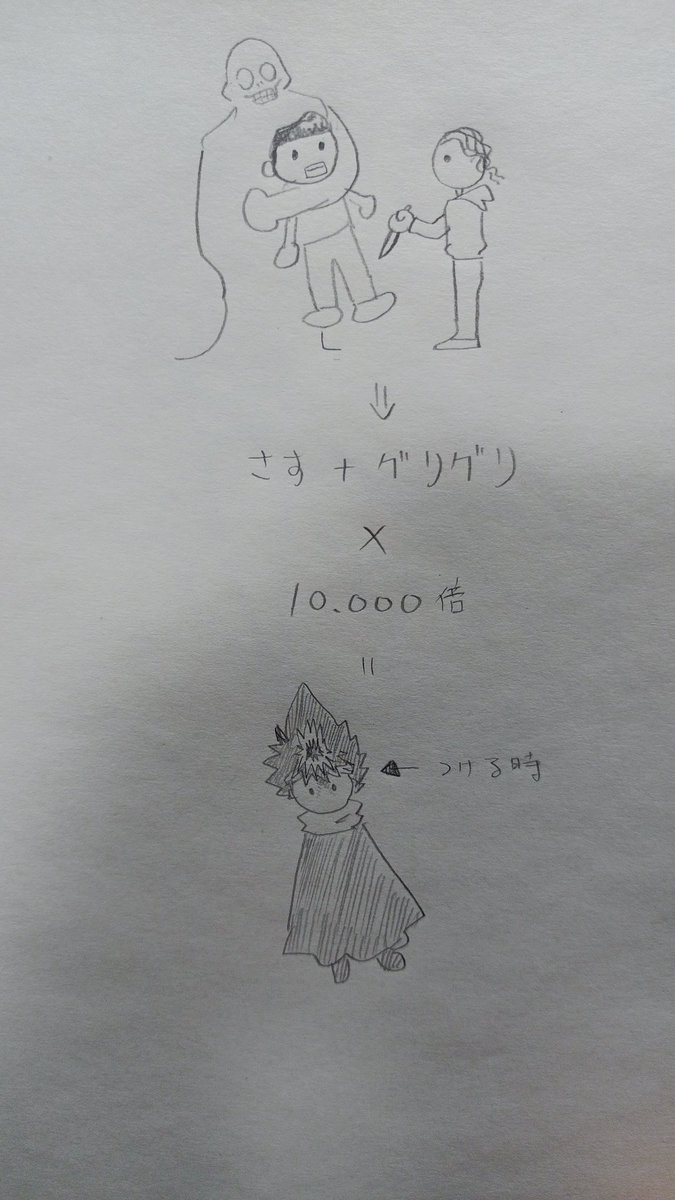 さす + グリグリ
×
10.000倍
=
つける時